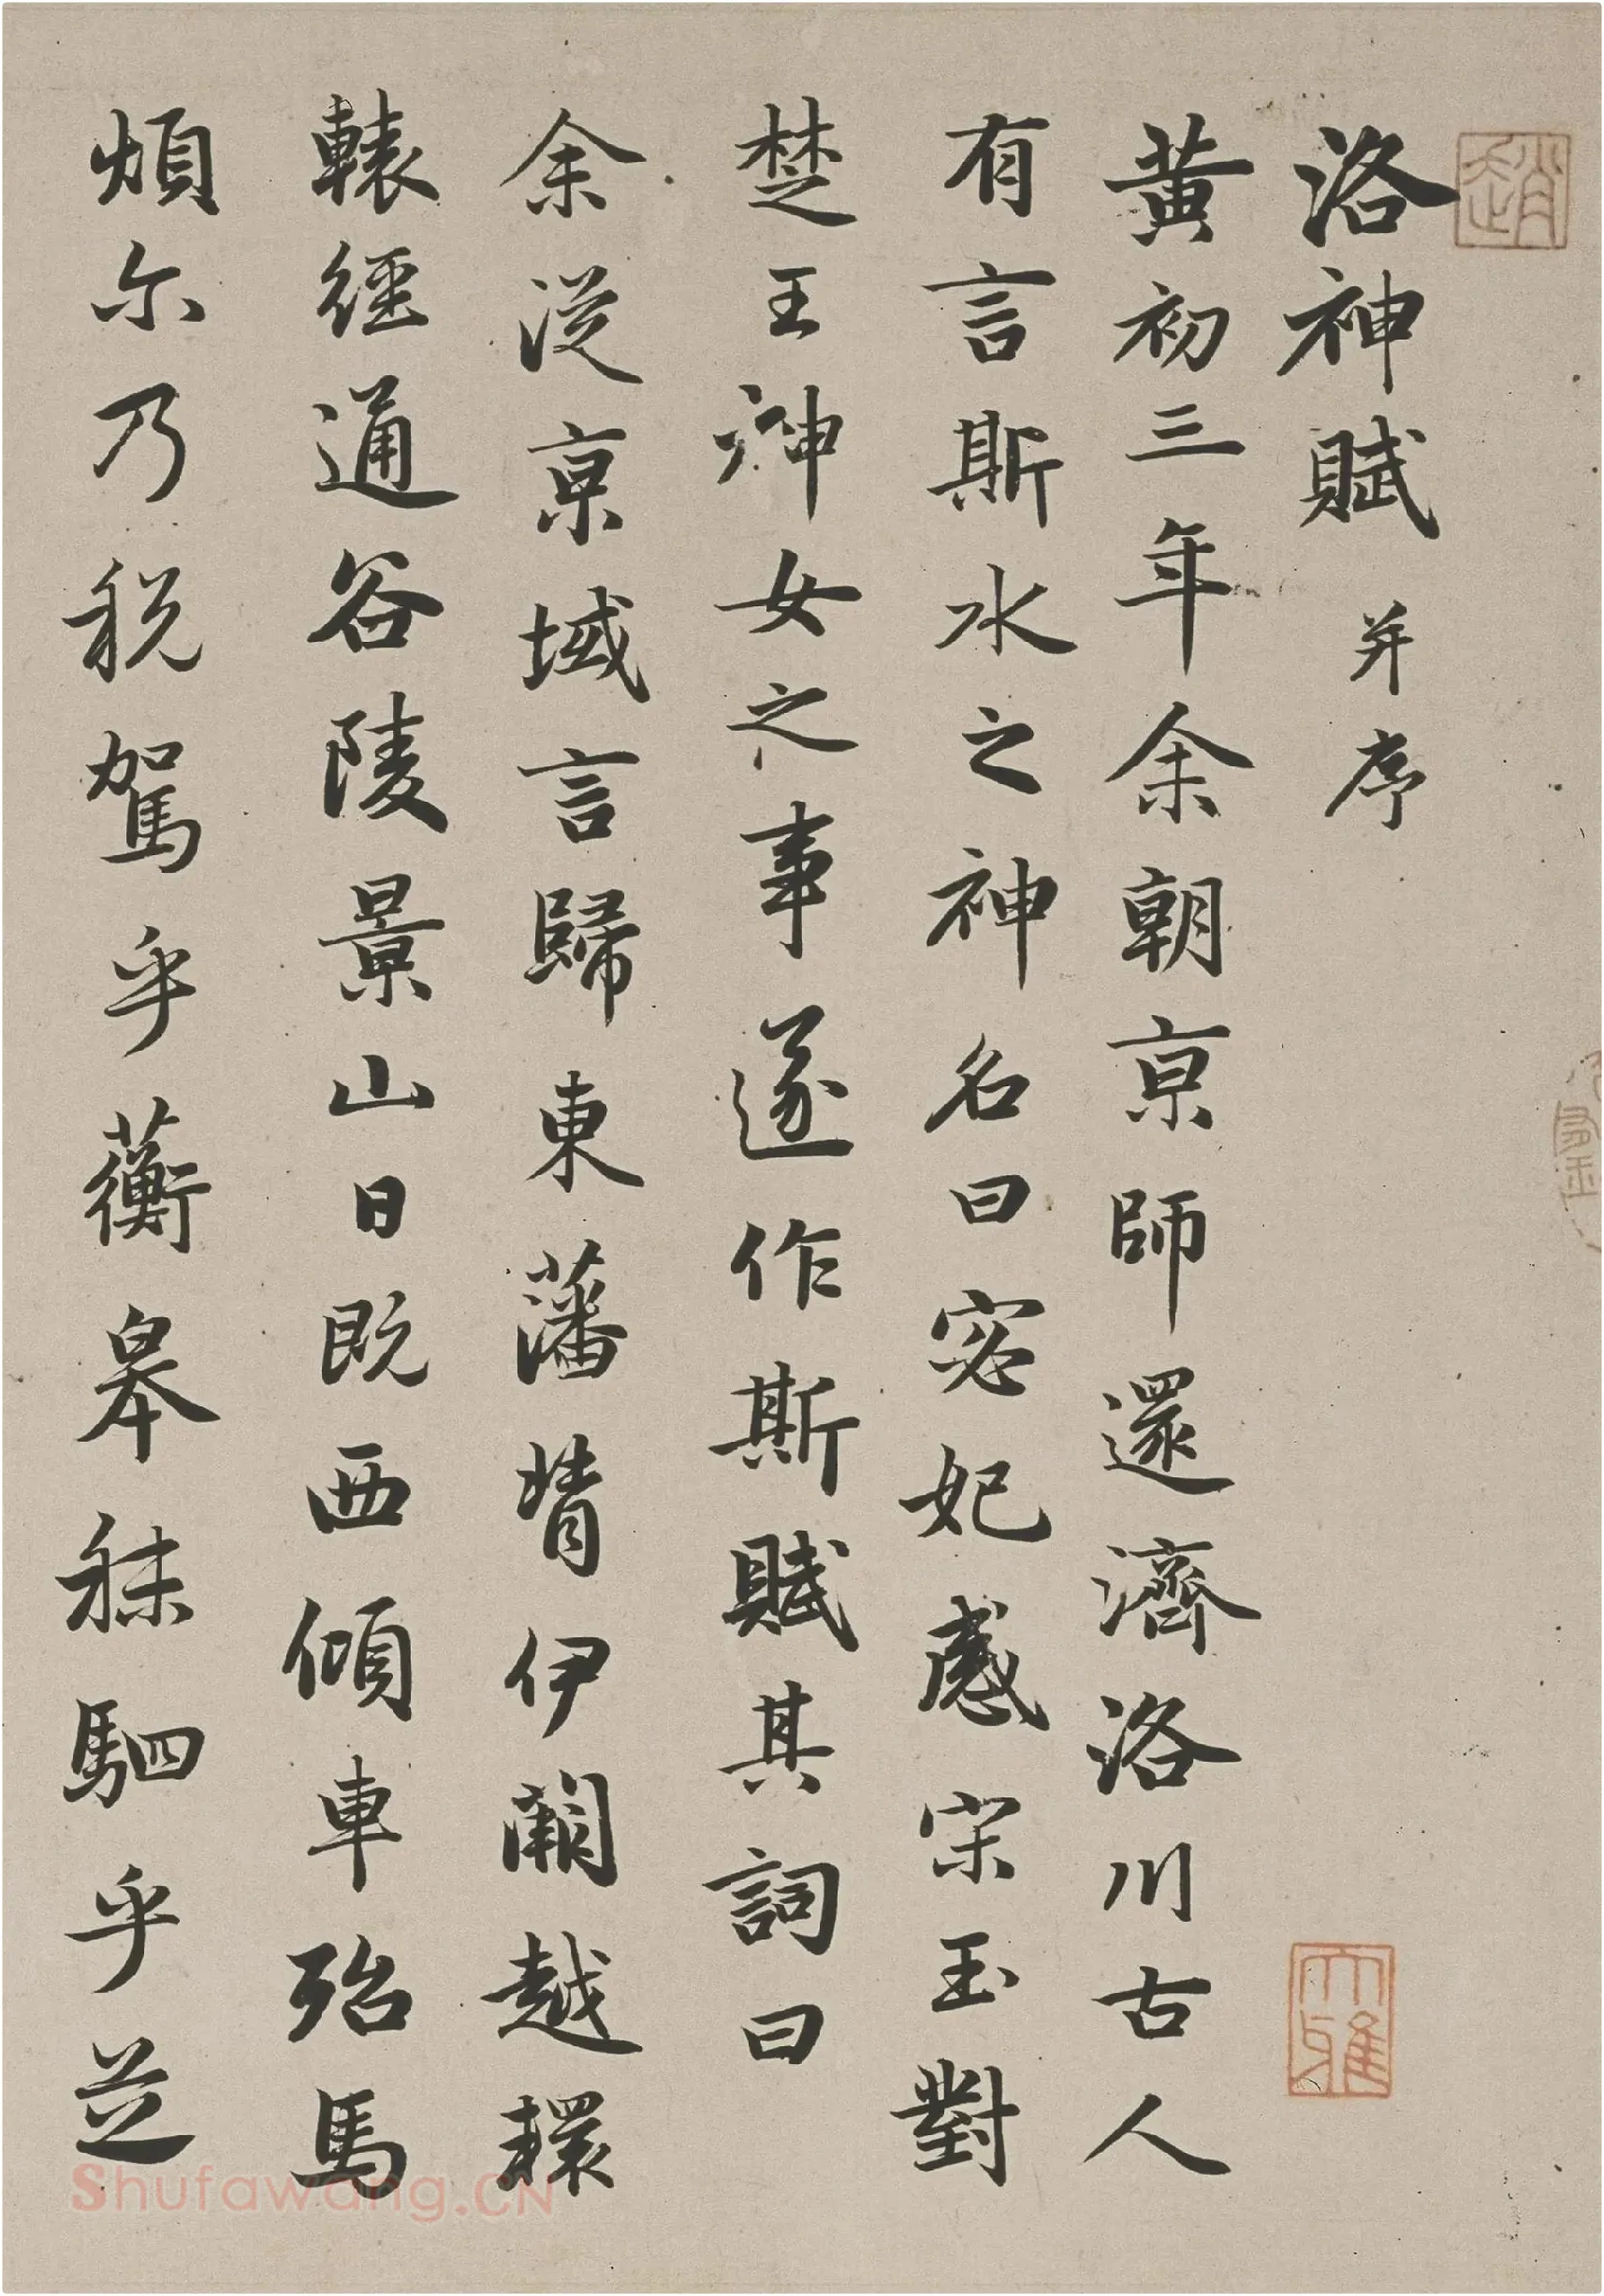 洛神賦 并序
黄初三年余朝京師還濟洛川古人
有言斯水之神名曰宓妃感宋玉對
楚王神女之事遂作斯賦其詞曰
余從京域言歸東藩背伊闕越轘
轅經通谷陵景山日既西傾車殆馬
煩尔乃税駕乎蘅皋秣駟乎芝
趙
大雅
Shufawang.CN